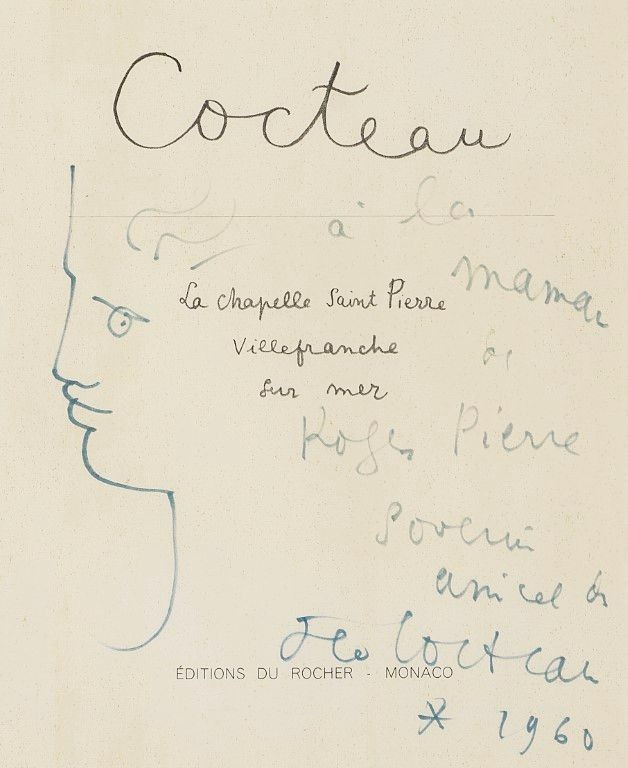 Cocteau
à la
maman
de
Roger Pierre
La chapelle Saint Pierre
Villefranche
sur mer
Souvenir
amical de
Jean Cocteau
* 1960
ÉDITIONS DU ROCHER - MONACO